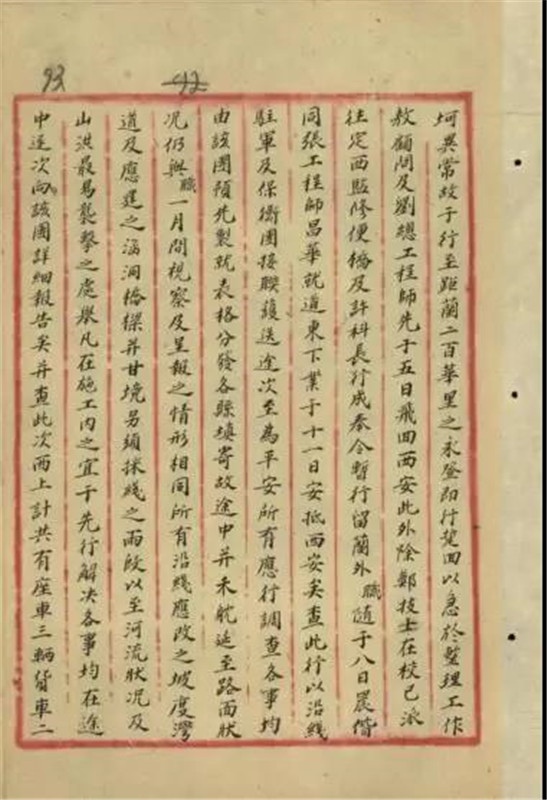 93
42
坷異常故于行至距蘭二百華里之永登即行梵回以急於整理工作
敖顧問及劉總工程師先于五日飛回西安此外除鄭技士在校已派
往定西監修便橋及許科長行成奉令暫行留蘭外職随于八日晨偕
同張工程師昌華就道東下業于十一日安抵西安矣查此行以沿綫
駐軍及保衛團接聯護送途次至為平安所有應行調查各事均
由該團預先製就表格分發各縣填寄故途中并未躭延至路面狀
况仍與職一月間視察及呈報之情形相同所有沿綫應改之坡度灣
道及應建之涵洞橋樑并甘境另須採綫之兩段以至河流狀况及
山洪最易襲擊之處舉凡在施工内之宜于先行解决各事均在途
中逐次向該團詳細報告矣并查此次西上計共有座車三輛貨車二